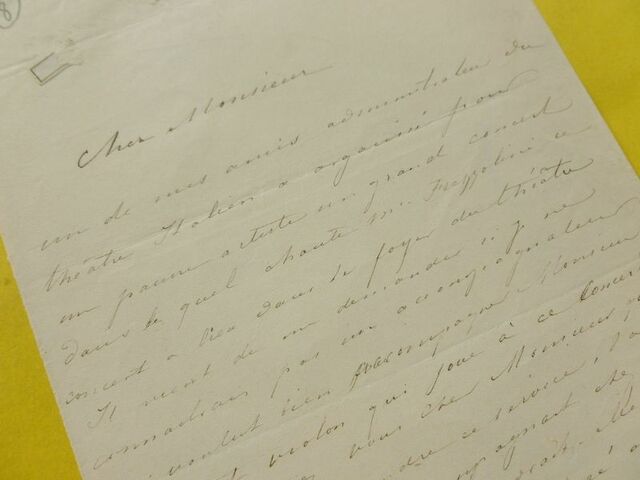 8
Cher Monsieur
un de mes amis administrateur du
théâtre Italien a organisé pour
un pauvre artiste un grand concert
dans le quel chante Mme Frezzolini ce
concert a lieu dans le foyer du théâtre
Il vient de me demander si je ne
connaitrais pas un accompagnateur
voulut bien accompagner Monsieur
violon qui joue à ce Concert
vous cher Monsieur
rendre ce service,